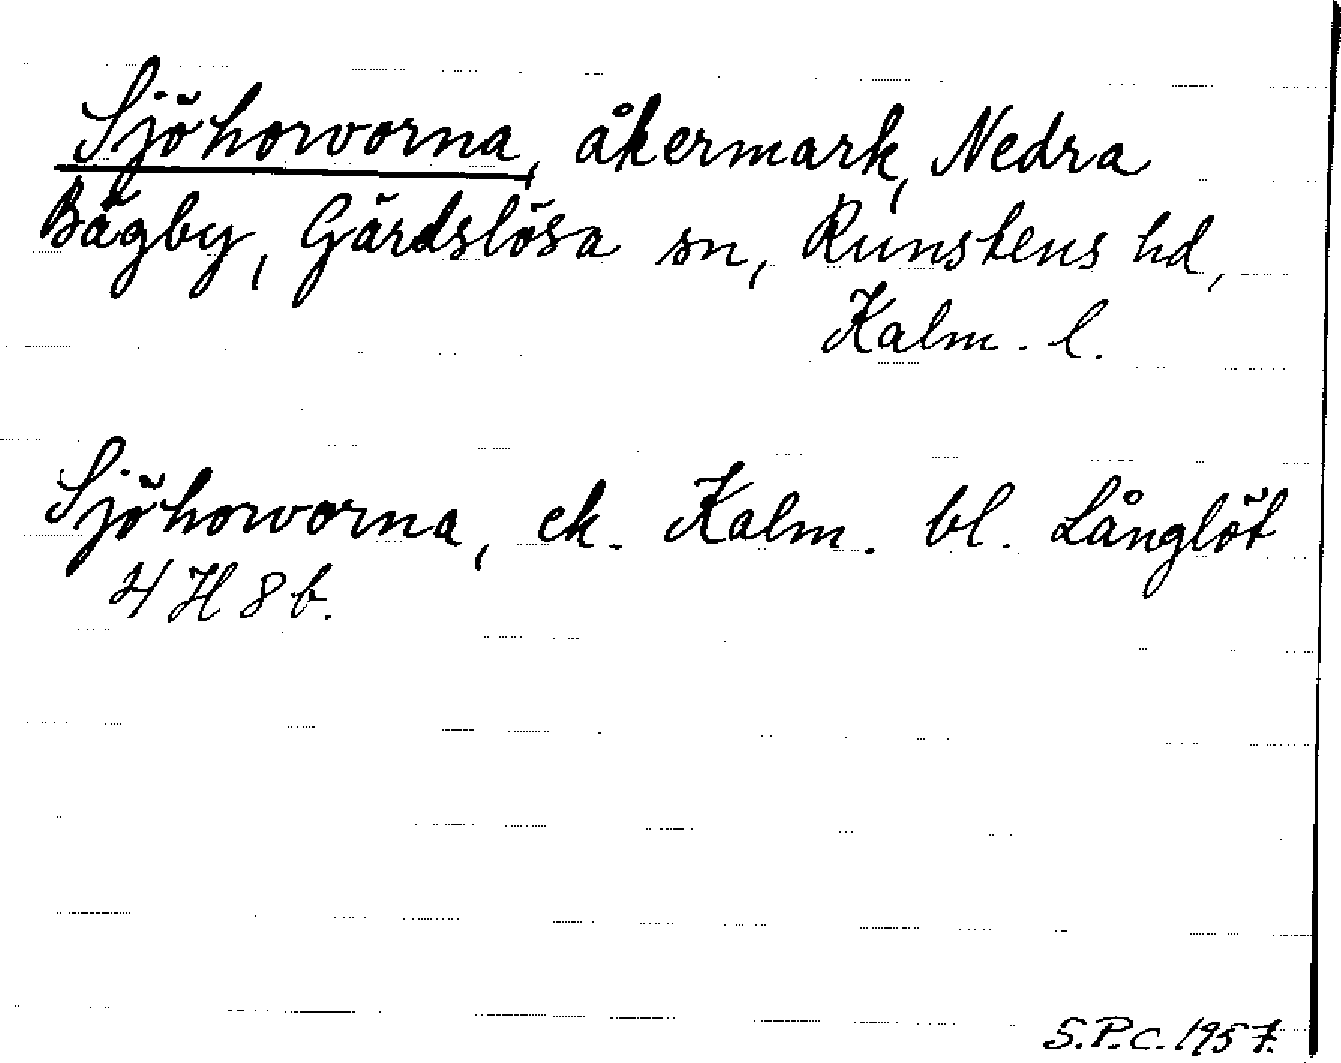 Sjöhorvorna, åkermark, Nedra
Bägby, Gärdslösa sn, Runstens hd,
Kalm. l.
Sjöhorvorna, ek. Kalm. bl. Långlöt
4 H 8 b.
S.P.C. 1957.